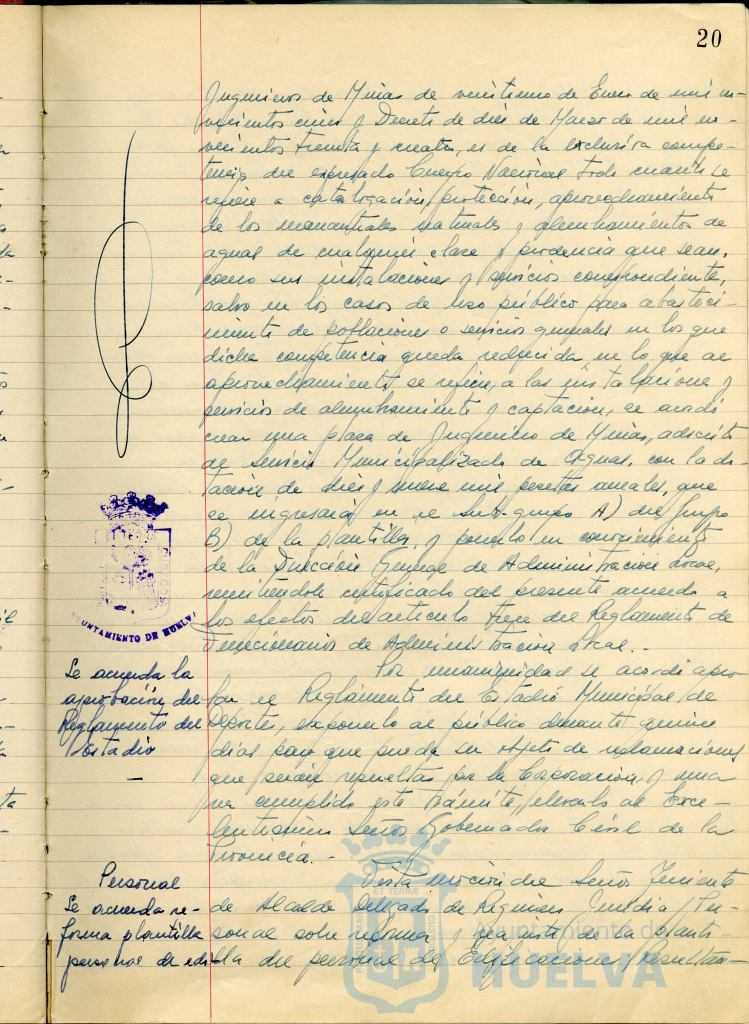 20
Ingenieros de Minas de veintiuno de Enero de mil no-
vecientos cinco y Decreto de diez de Marzo de mil no-
vecientos treinta y cuatro, es de la exclusiva compe-
tencia del expresado Cuerpo Nacional todo cuanto se
refiere a catalogación, protección, aprovechamiento
de los manantiales naturales y alumbramientos de
aguas de cualquier clase y procedencia que sean,
como sus instalaciones y servicios correspondiente,
salvo en los casos de uso público para abasteci-
miento de poblaciones o servicios generales en los que
dicha competencia queda reducida en lo que al
aprovechamiento se refiere, a las instalaciones y
servicios de alumbramiento y captación, se acordó
crear una plaza de Ingeniero de Minas, adscrito
al Servicio Municipalizado de Aguas, con la do-
tación de diez y nueve mil pesetas anuales, que
se ingresará en el Sub-grupo A) del Grupo
B) de la plantilla, y ponerlo en conocimiento
de la Dirección General de Administración Local,
remitiéndole certificado del presente acuerdo a
los efectos del artículo trece del Reglamento de
Funcionarios de Administración Local.-
AYUNTAMIENTO DE HUELVA
Se acuerda la
aprobación del
Reglamento del
Estadio
Por unanimidad se acordó apro-
bar el Reglamento del Estadio Municipal de
Deportes, exponerlo al público durante quince
días para que pueda ser objeto de reclamaciones
que serán resueltas por la Corporación, y una
vez cumplido este trámite, elevarlo al Exce-
lentísimo Señor Gobernador Civil de la
Provincia.-
Personal
Se acuerda re-
forma plantilla
personal de edi
Vista moción del Señor Teniente
de Alcalde Delegado de Régimen Jurídico y Per-
sonal sobre reforma y reajuste de la planti-
lla del personal de Edificaciones, Resultan-
Ayuntamiento de
HUELVA